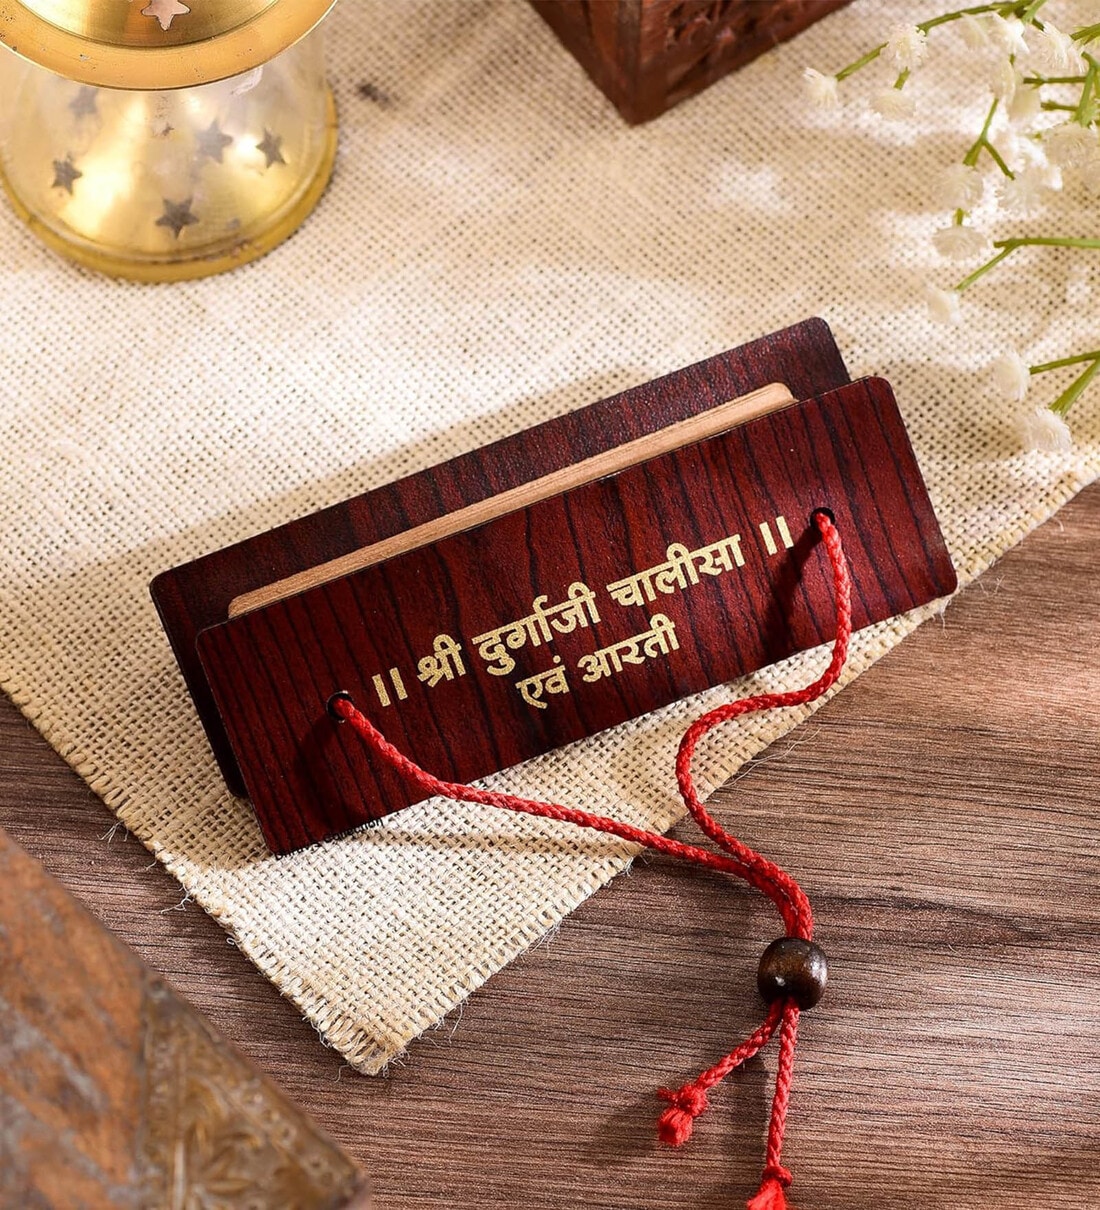 ॥ श्री दुर्गाजी चालीसा ॥
एवं आरती